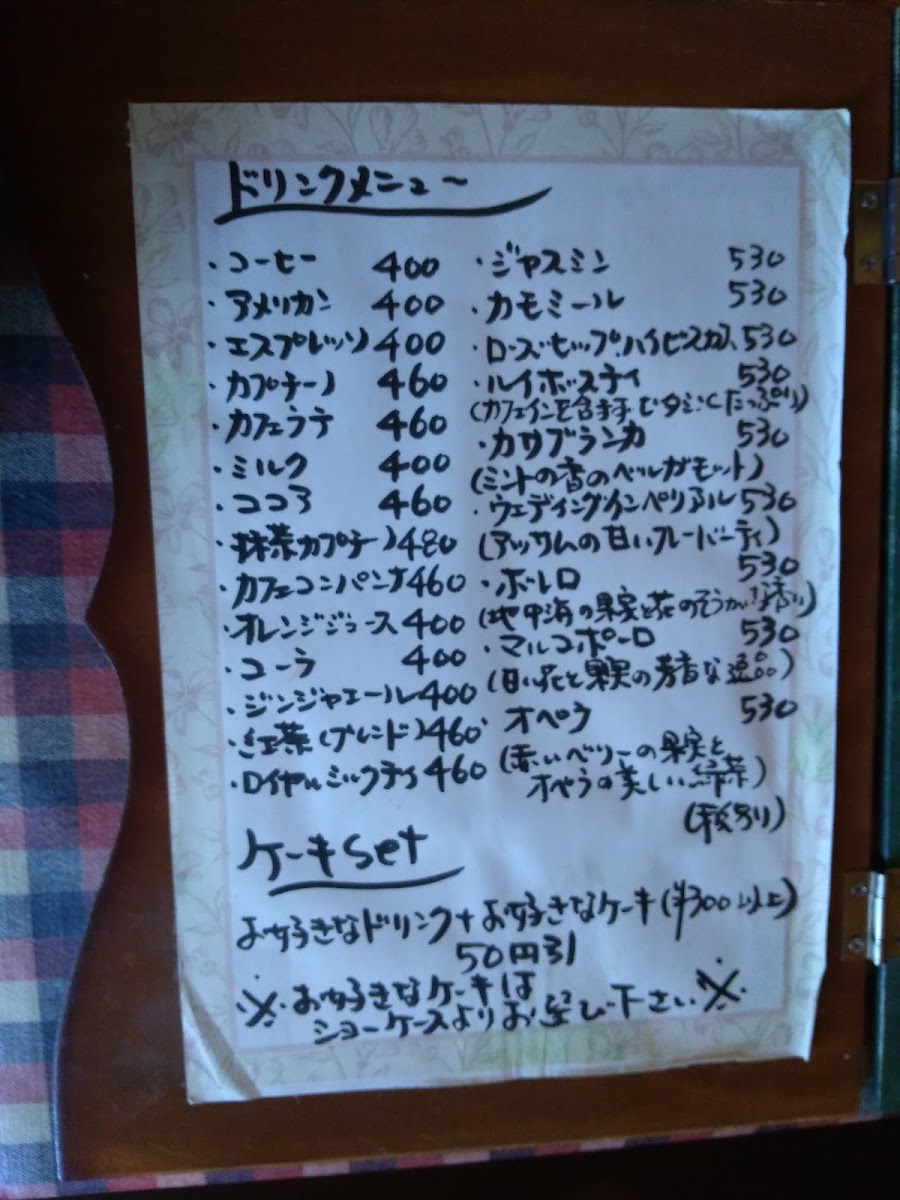 ドリンクメニュー
・コーヒー 400
・アメリカン 400
・エスプレッソ 400
・カプチーノ 460
・カフェラテ 460
・ミルク 400
・ココア 460
・抹茶カプチーノ 480
・カフェコンパンナ 460
・オレンジジュース 400
・コーラ 400
・ジンジャエール 400
・紅茶(ブレンド) 460
・ロイヤルミルクティ 460
・ジャスミン 530
・カモミール 530
・ローズヒップ・ハイビスカス 530
・ルイボスティ 530
(カフェインを含まず ビタミンCたっぷり)
・カサブランカ 530
(ミントの香のベルガモット)
・ウェディングインペリアル 530
(アッサムの甘いフレーバーティ)
・ボレロ 530
(地中海の果実と花のそうかいな香り)
・マルコポーロ 530
(甘い花と果実の芳香な逸品)
・オペラ 530
(赤いベリーの果実と
オペラの美しい緑茶)
(税別り)
ケーキset
お好きなドリンク+お好きなケーキ(¥300以上)
50円引
※お好きなケーキは
ショーケースよりお選び下さい※